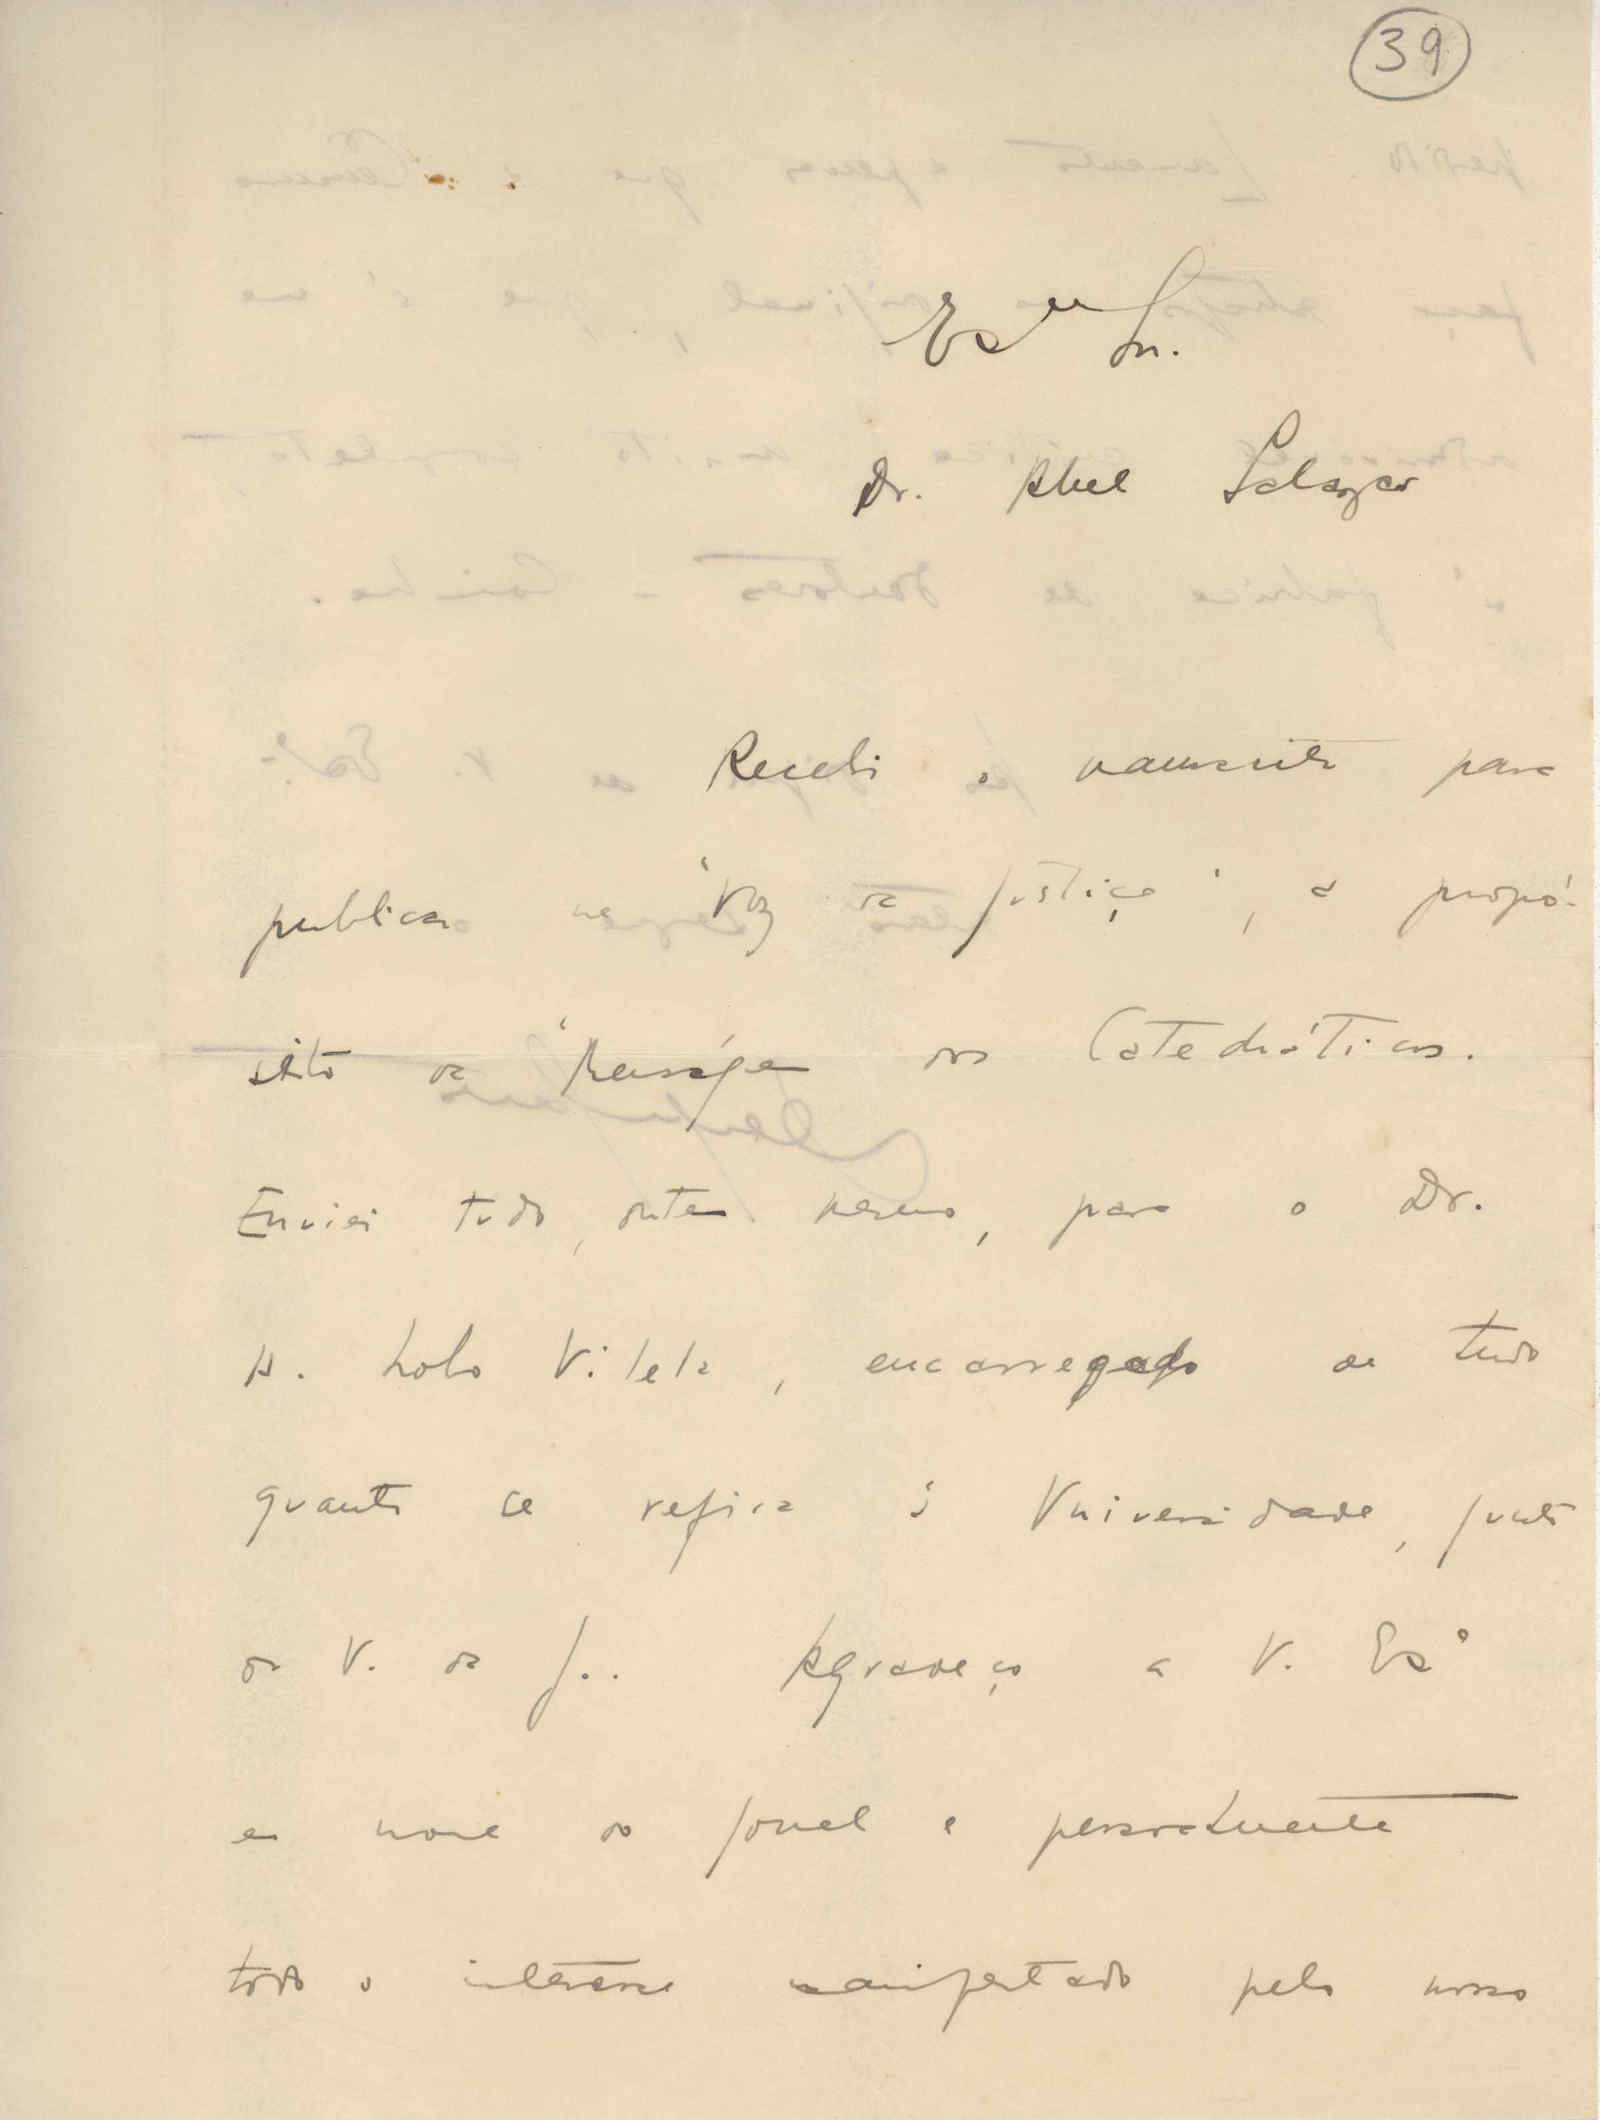 39
Exmo Sr.
Dr. Abel Salazar
Recebi o manuscrito para
publicar na "Voz da Justiça", a propó-
sito da "Mensagem dos Catedráticos.
Enviei tudo, ontem mesmo, para o Dr.
A. Lobo Vilela, encarregado de tudo
quanto se refira à Universidade, junto
da V. da J.. Agradeço a V. Exª
em nome do jornal e pessoalmente
todo o interesse manifestado pelo nosso